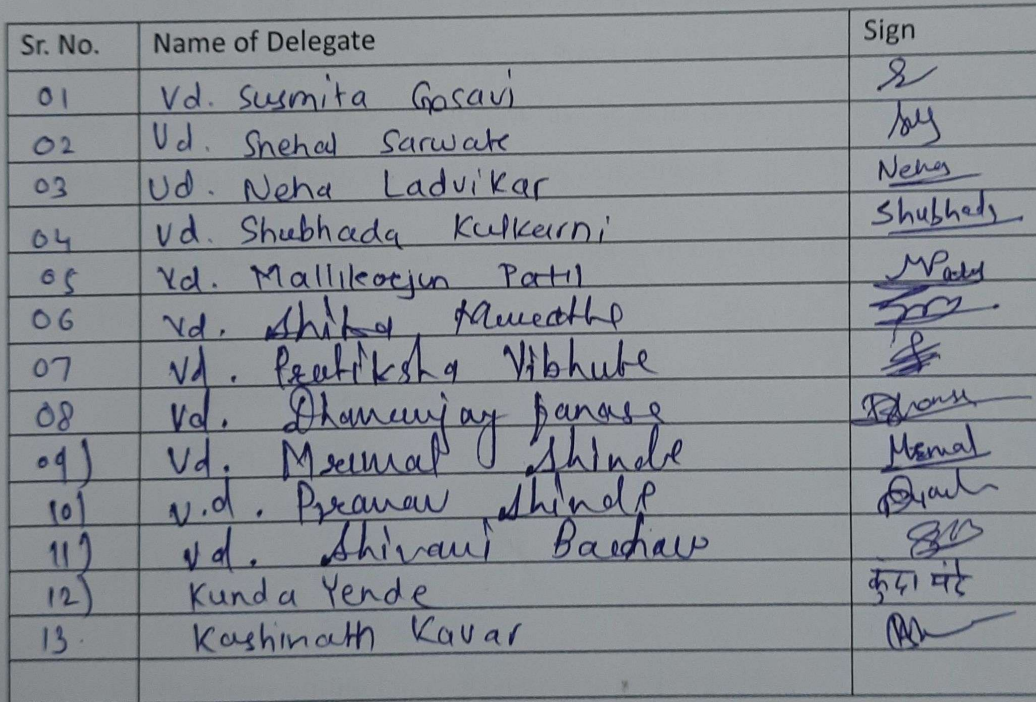 Sr. No. Name of Delegate Sign
01 Vd. Susmita Gosavi
02 Vd. Snehal Sarwate
03 Vd. Neha Ladvikar Neha
04 Vd. Shubhada Kulkarni Shubhada
05 Vd. Mallikarjun Patil
06 Vd.
07 Vd. Pratiksha Vibhute
08 Vd. Dhananjay
09) Vd. Mrunal Shinde
10) v.d. Pranav Shinde
11) vd. Shivani
12) Kunda Yende
13. Kashinath Kavar